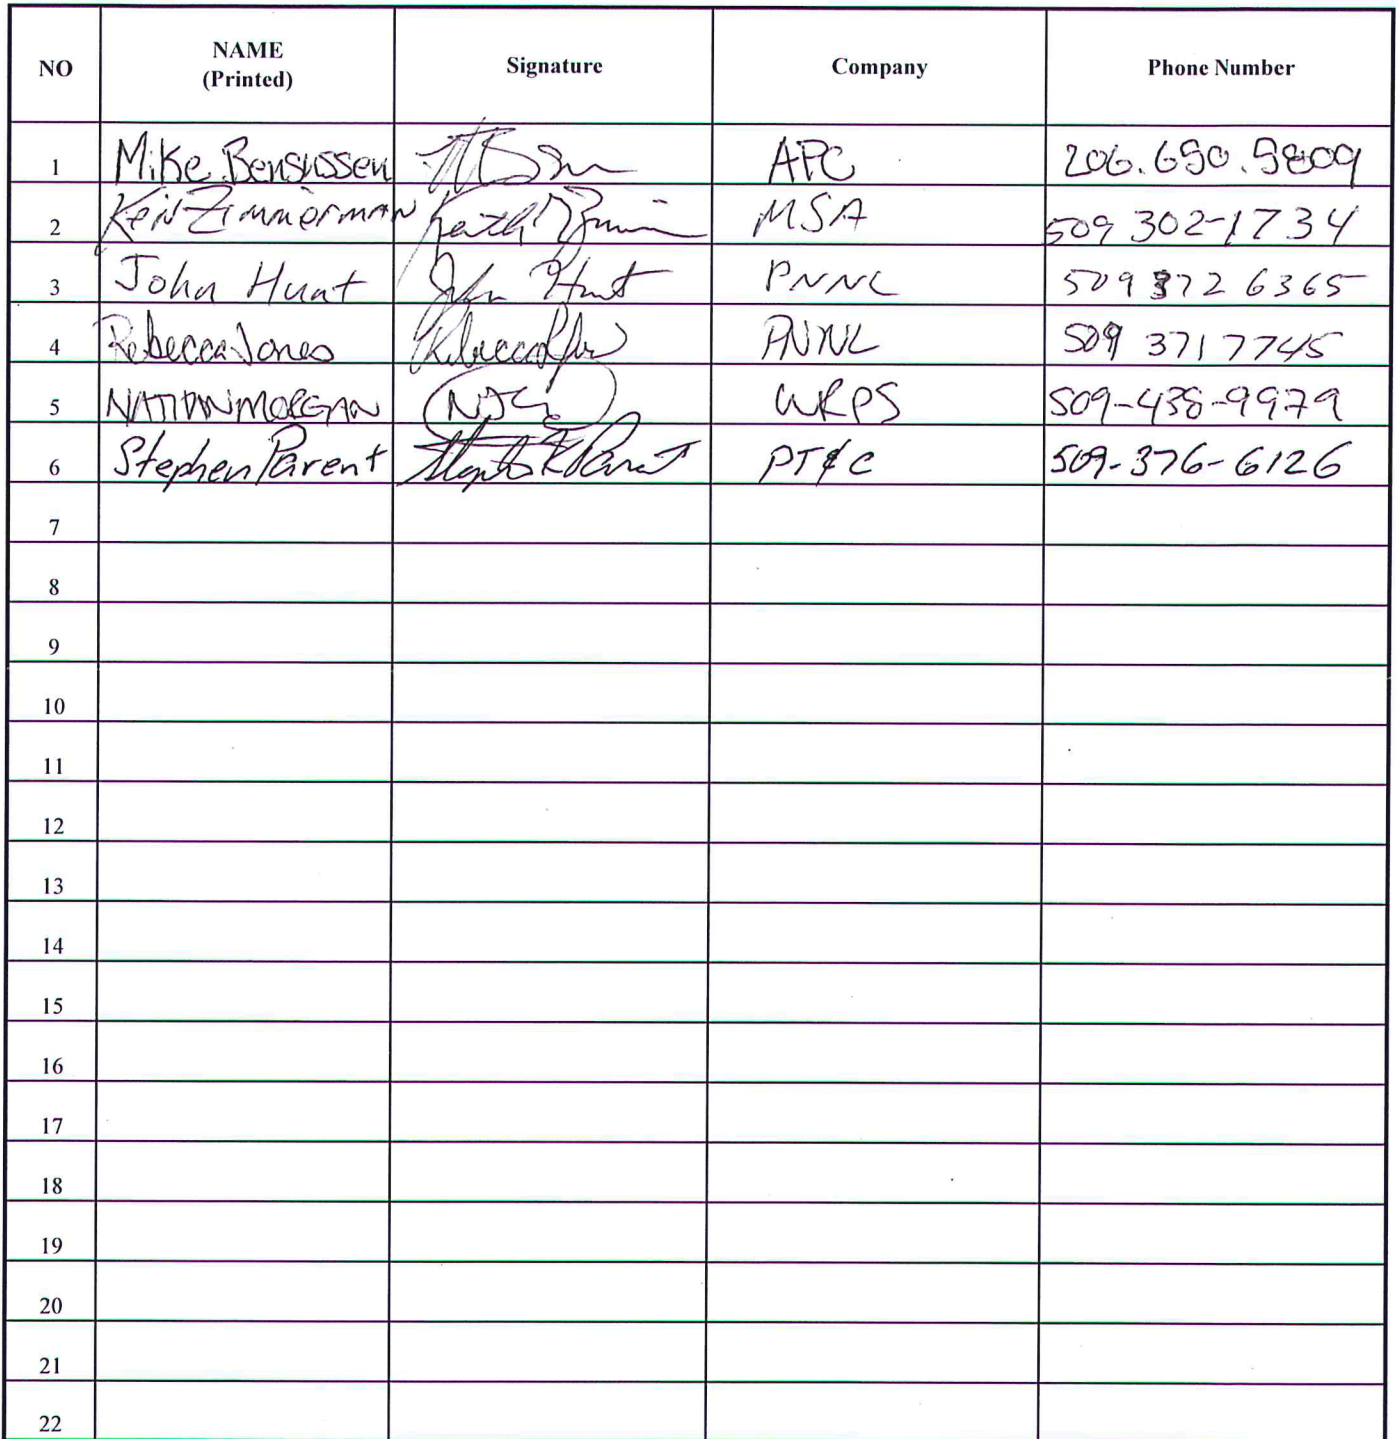 NO NAME (Printed) Signature Company Phone Number
1 Mike Bensussen APC 206.650.5809
2 Zimmerman Keith MSA 509 302-1734
3 John Hunt John Hunt PNNL 509 372 6365
4 Rebecca Jones Rebecca PNNL 509 371 7745
5 NATHAN MORGAN WRPS 509-438-9979
6 Stephen Parent PT&C 509-376-6126
7
8
9
10
11
12
13
14
15
16
17
18
19
20
21
22